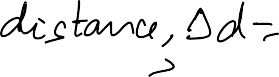 distance, Δd=